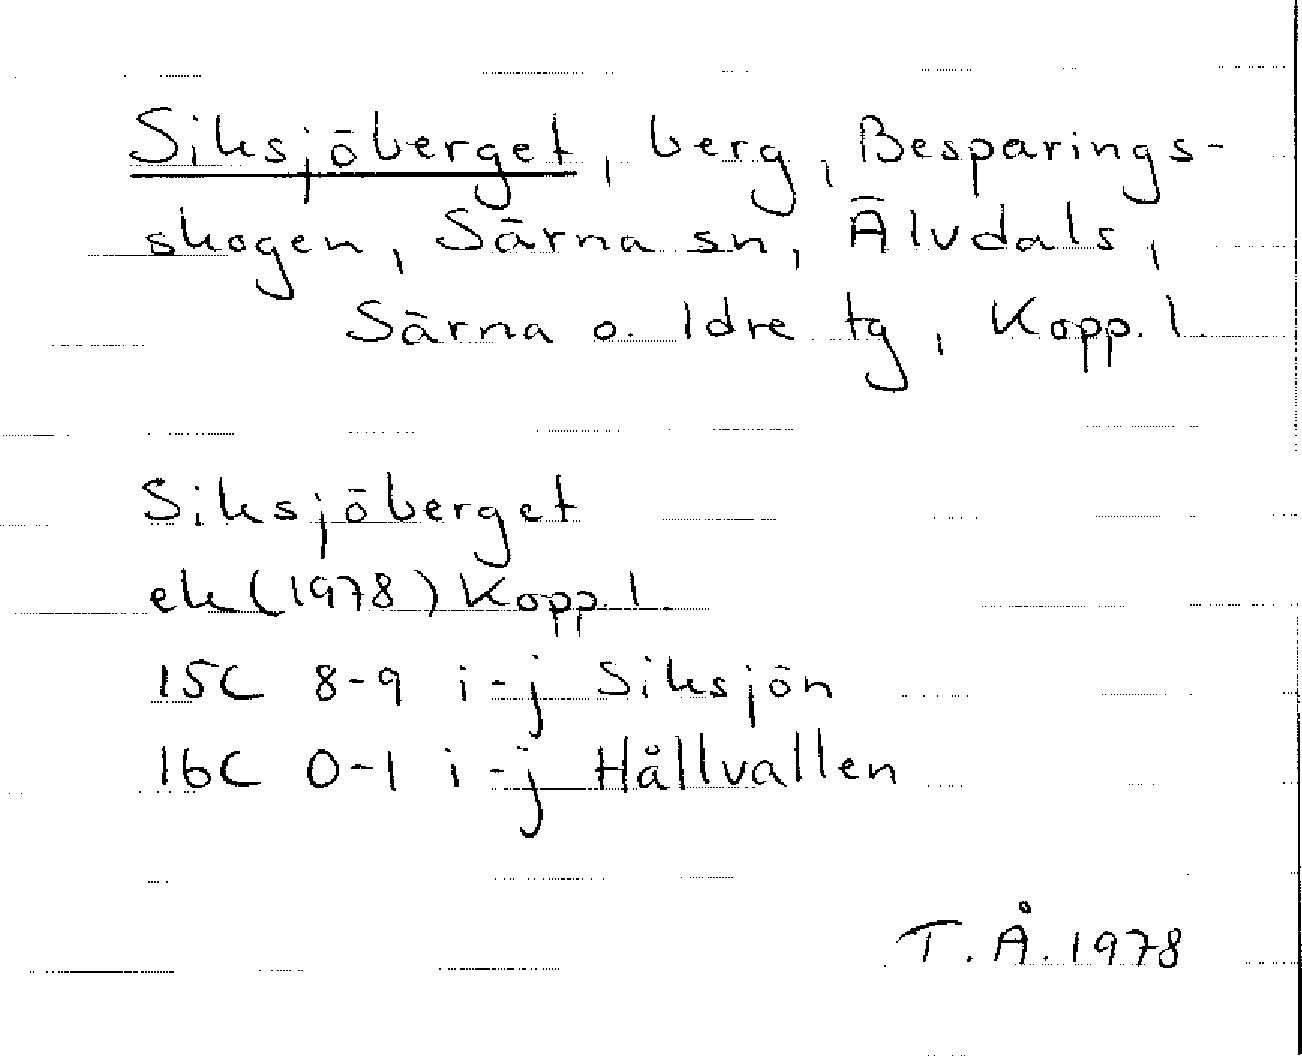 Siksjöberget, berg, Besparings-
skogen, Särna sn, Älvdals,
Särna o. Idre tg, Kopp. l.
Siksjöberget
ek (1978) Kopp. l.
15C 8-9 i-j Siksjön
16C 0-1 i-j Hållvallen
T.Å. 1978